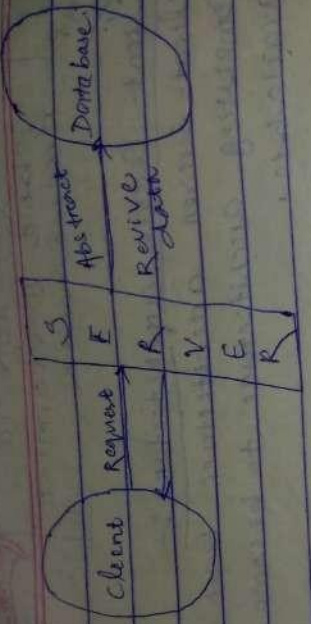 Client
Request
S
E
R
V
E
R
Abstract
Revive
data
Database